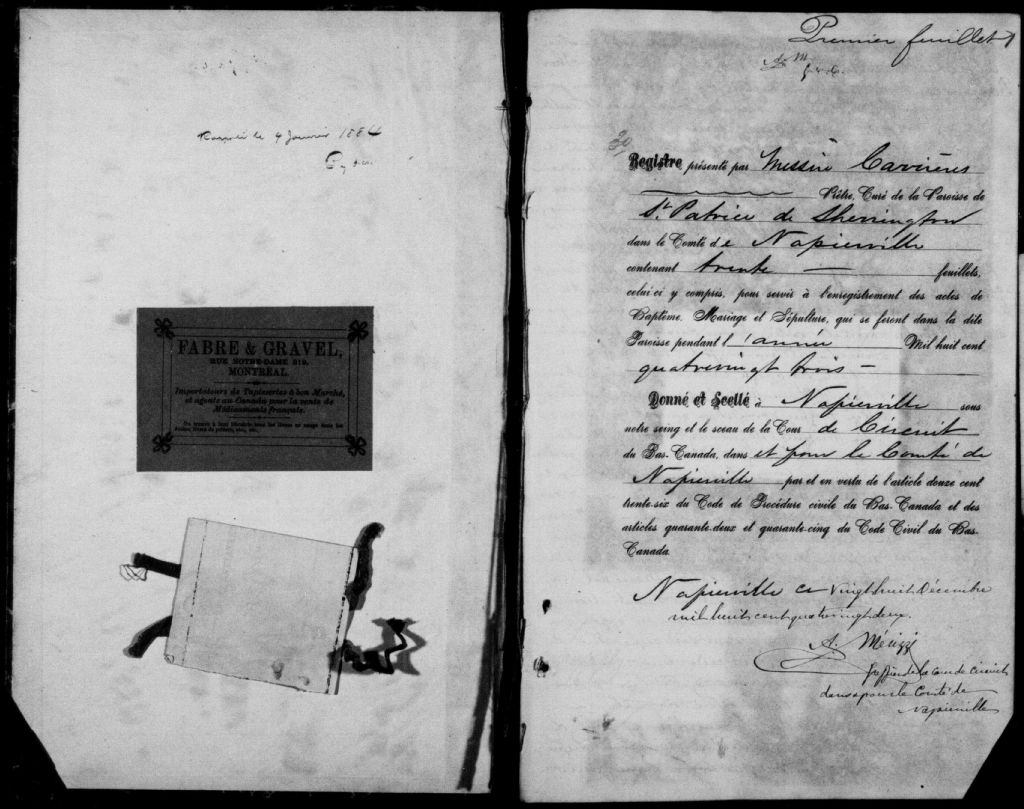 le 4 Janvier 1884
FABRE & GRAVEL,
RUE NOTRE-DAME 219,
MONTRÉAL.
Importateurs de Tapisseries à bon Marché,
et agents au Canada pour la vente de
Médicaments français.
On trouve à leur librairie tous les livres en usage dans les
Premier feuillet
A. M.
g.c.c.
30
Registre présenté par Messire Carrières
Prêtre, Curé de la Paroisse de
St. Patrice de Sherrington
dans le Comté de Napierville
contenant trente — feuillets,
celui-ci y compris, pour servir à l'enregistrement des actes de
Baptême, Mariage et Sépulture, qui se feront dans la dite
Paroisse pendant l'année Mil huit cent
quatrevingt trois —
Donné et Scellé à Napierville sous
notre seing et le sceau de la Cour de Circuit
du Bas-Canada, dans et pour le Comté de
Napierville par et en vertu de l'article douze cent
trente-six du Code de Procédure civile du Bas-Canada et des
articles quarante-deux et quarante-cinq du Code Civil du Bas-
Canada.
Napierville ce vingthuit Décembre
mil huit cent quatrevingt deux.
A. Mérizzi
greffier de la cour de circuit
dans et pour le Comté de
Napierville